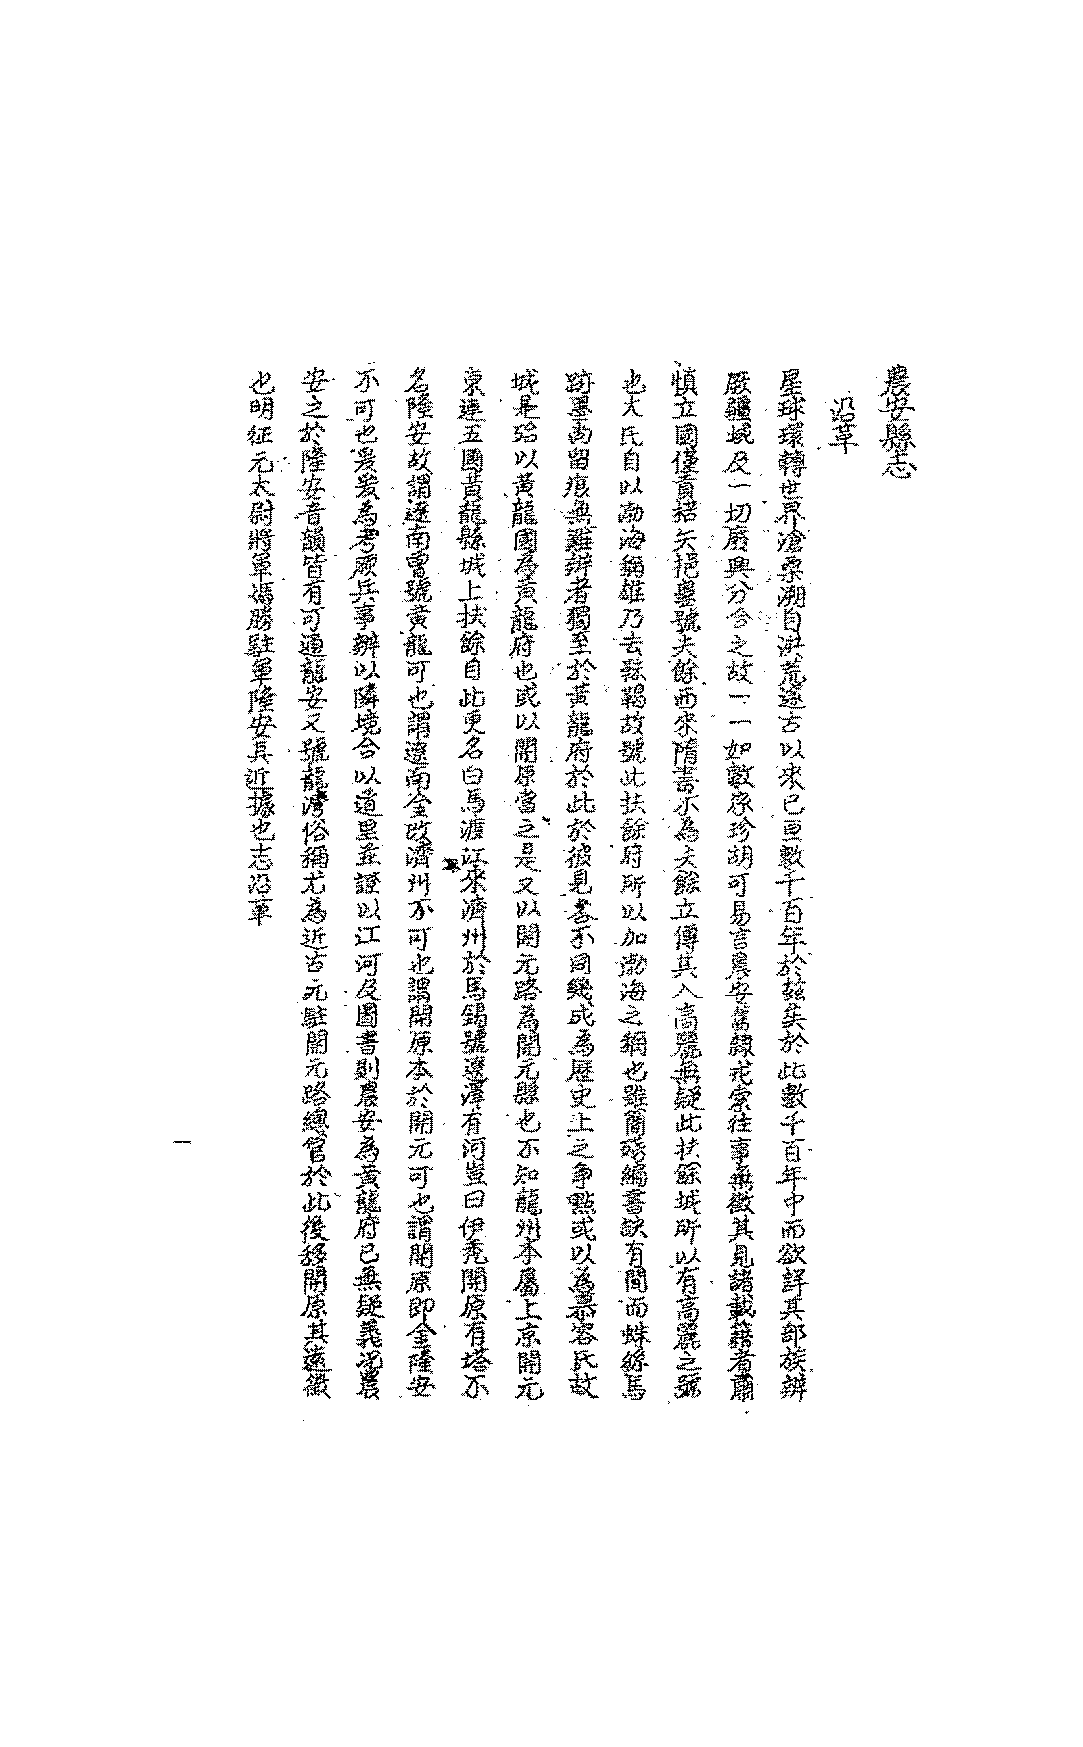 農安縣志
沿革
星球環轉世界滄桑溯自洪荒邃古以來已亘數千百年於茲矣於此數千百年中而欲詳其部族辨
厥疆域及一切廢興分合之故一一如數家珍胡可易言農安舊隸戎索往事無徵其見諸載籍者肅
慎立國僅貢楛矢挹婁號夫餘而來隋書亦為夫餘立傳其入高麗無疑此扶餘城所以有高麗之號
也大氏自以渤海稱雄乃去靺鞨故號此扶餘府所以加渤海之稱也雖簡殘編書欲有間而蛛絲馬
跡墨尚留痕無難辨者獨至於黃龍府於此於彼見各不同幾成為歷史上之爭點或以為慕容氏故
城是殆以黃龍國為黃龍府也或以開原當之是又以開元路為開元縣也不知龍州本屬上京開元
東連五國黃龍縣城上扶餘自此更名白馬渡以來濟州於馬錫號遼澤有河豈曰伊禿開原有塔不
名隆安故謂遼南曾號黃龍可也謂遼南全改濟州不可也謂開原本於開元可也謂開原即金隆安
不可也爰為考厥兵事辦以隣境合以道里並證以江河及圖書則農安為黃龍府已無疑義況農
安之於隆安音韻皆有可通龍安又號龍灣俗稱尤為近古元駐開元路總管於此後移開原其遠徵
也明征元太尉將軍馮勝駐軍隆安其近據也志沿革
一